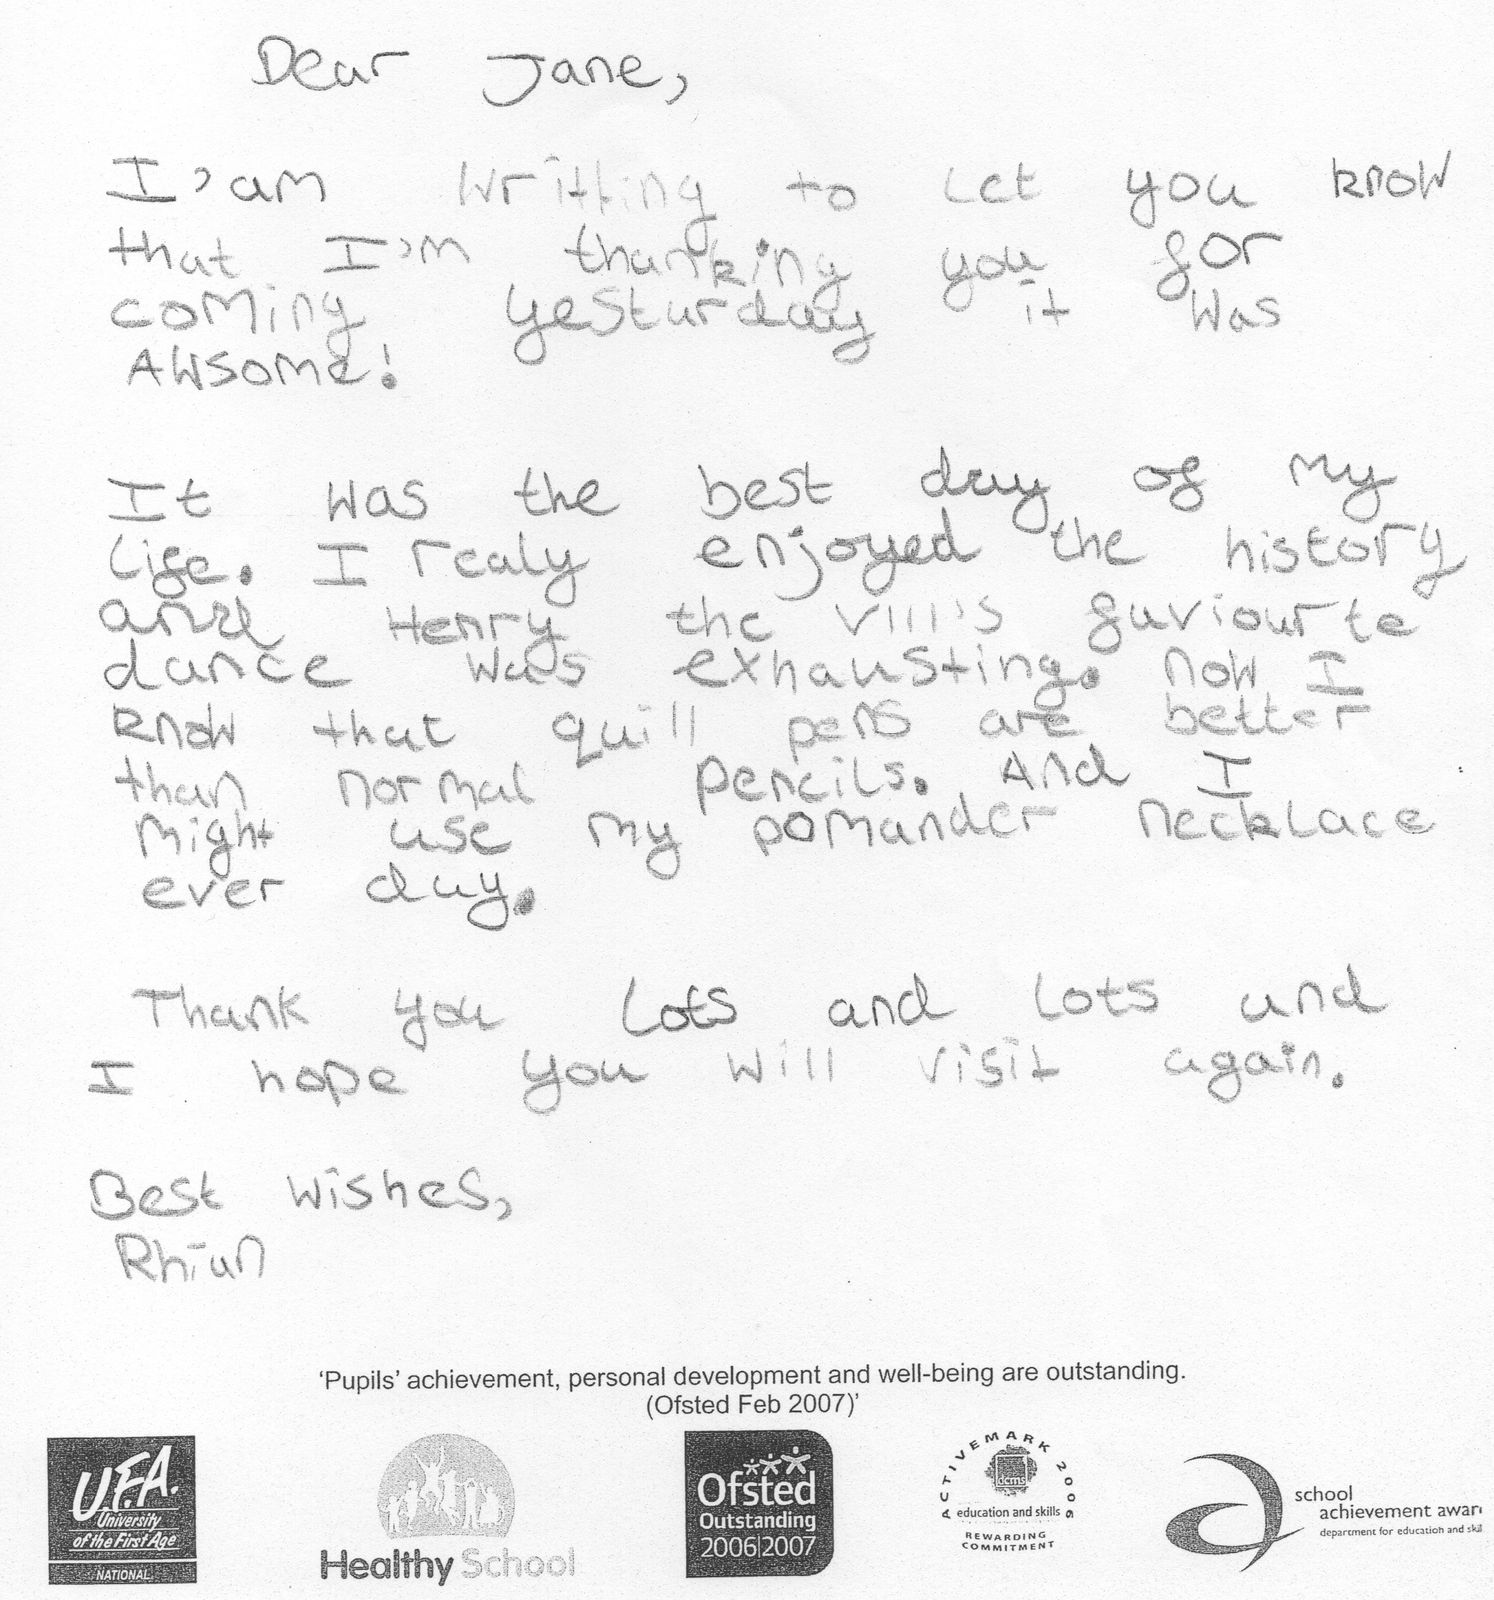 Dear Jane,
I'am writting to let you know
that I'm thanking you for
coming yesturday it was
Awsome!
It was the best day of my
life. I realy enjoyed the history
and Henry the VIII's faviourte
dance was exhausting. now I
know that quill pens are better
than normal pencils. And I
might use my pomander necklace
ever day.
Thank you lots and lots and
I hope you will visit again.
Best wishes,
Rhian
‘Pupils’ achievement, personal development and well-being are outstanding.
(Ofsted Feb 2007)’
U.F.A.
University
of the First Age
NATIONAL
Healthy School
Ofsted
Outstanding
2006|2007
ACTIVEMARK 2006
dcms
education and skills
REWARDING
COMMITMENT
school
achievement awar
department for education and skil